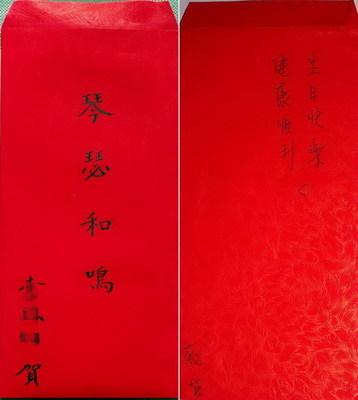 琴瑟和鳴
李
賀
生日快樂
健康順利